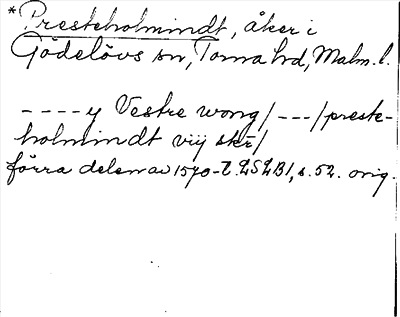 *Presteholmindt, åker i
Gödelövs sn, Torna hd, Malm. l.
- - - - y Vestre wong / - - - / preste-
holmindt viij skr̄ /
förra delen av 1570-t. LSLB1, s. 52. orig.